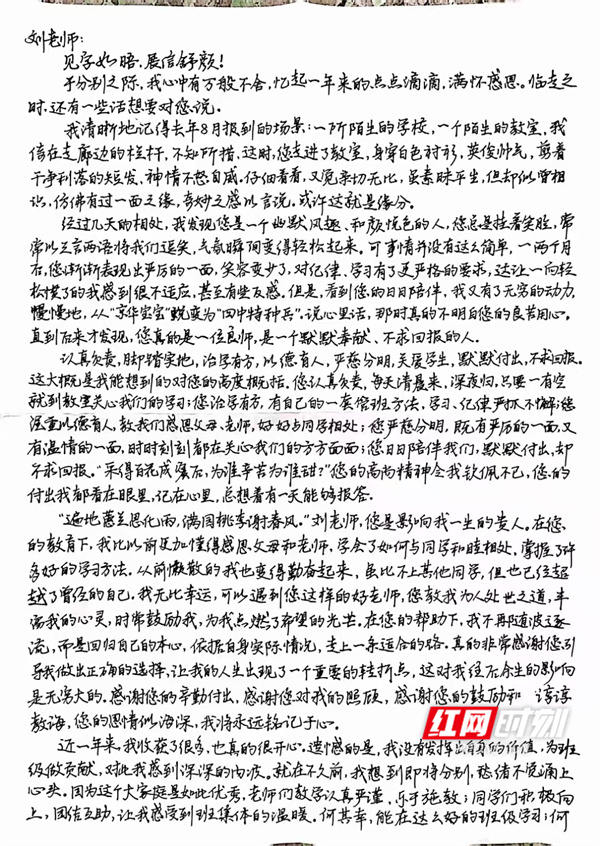 刘老师：
见字如晤，展信舒颜！
于分别之际，我心中有万般不舍，忆起一年来的点点滴滴，满怀感恩。临走之
时，还有一些话想要对您说。
我清晰地记得去年8月报到的场景：一所陌生的学校，一个陌生的教室，我
倚在走廊边的栏杆，不知所措，这时，您走进了教室，身穿白色衬衫，英俊帅气，剪着
干净利落的短发，神情不怒自威。仔细看看，又觉亲切无比，虽素昧平生，但却似曾相
识，仿佛有过一面之缘，奇妙之感难以言说，或许这就是缘分。
经过几天的相处，我发现您是一个幽默风趣、和颜悦色的人，您总是挂着笑脸，常
常以三言两语将我们逗笑，气氛瞬间变得轻松起来。可事情并没有这么简单，一两个月
后，您渐渐表现出严厉的一面，笑容变少了，对纪律、学习有了更严格的要求，这让一向轻
松惯了的我感到很不适应，甚至有些反感。但是，看到您的日日陪伴，我又有了无穷的动力，
慢慢地，从“京华宝宝”蜕变为“四中特种兵”。说心里话，那时真的不明白您的良苦用心。
直到后来才发现，您真的是一位良师，是一个默默奉献、不求回报的人。
认真负责，脚踏实地，治学有方，以德育人，严慈分明，关爱学生，默默付出，不求回报。
这大概是我能想到的对您的高度概括。您认真负责，每天清晨来，深夜归，只要一有空
就到教室关心我们的学习；您治学有方，有自己的一套管班方法，学习、纪律严抓不懈；您
注重以德育人，教我们感恩父母、老师，好好与同学相处；您严慈分明，既有严厉的一面，又
有温情的一面，时时刻刻都在关心我们的方方面面；您日日陪伴我们，默默付出，却
不求回报。“采得百花成蜜后，为谁辛苦为谁甜？”您的高尚精神令我钦佩不已，您的
付出我都看在眼里，记在心里，总想着有一天能够报答。
“遍地蕙兰思化雨，满园桃李谢春风。”刘老师，您是影响我一生的贵人。在您
的教育下，我比以前更加懂得感恩父母和老师，学会了如何与同学和睦相处，掌握了许
多好的学习方法。从前懒散的我也变得勤奋起来，虽比不上其他同学，但也已经超
越了曾经的自己。我无比幸运，可以遇到您这样的好老师，您教我为人处世之道，丰
富我的心灵，时常鼓励我，为我点燃了希望的光芒。在您的帮助下，我不再随波逐
流，而是回归自己的本心，依据自身实际情况，走上一条适合的路。真的非常感谢您引
导我做出正确的选择，让我的人生出现了一个重要的转折点，这对我往后余生的影响
是无穷大的。感谢您的辛勤付出，感谢您对我的照顾，感谢您的鼓励和谆谆
教诲，您的恩情似海深，我将永远铭记于心。
近一年来，我收获了很多，也真的很开心。遗憾的是，我没有发挥出自身的价值，为班
级做贡献，对此我感到深深的内疚。就在不久前，我想到即将分别，愁绪不觉涌上
心头。因为这个大家庭是如此优秀，老师们教学认真严谨，乐于施教；同学们积极向
上，团结互助，让我感受到班集体的温暖。何其幸，能在这么好的班级学习；何
红网时刻